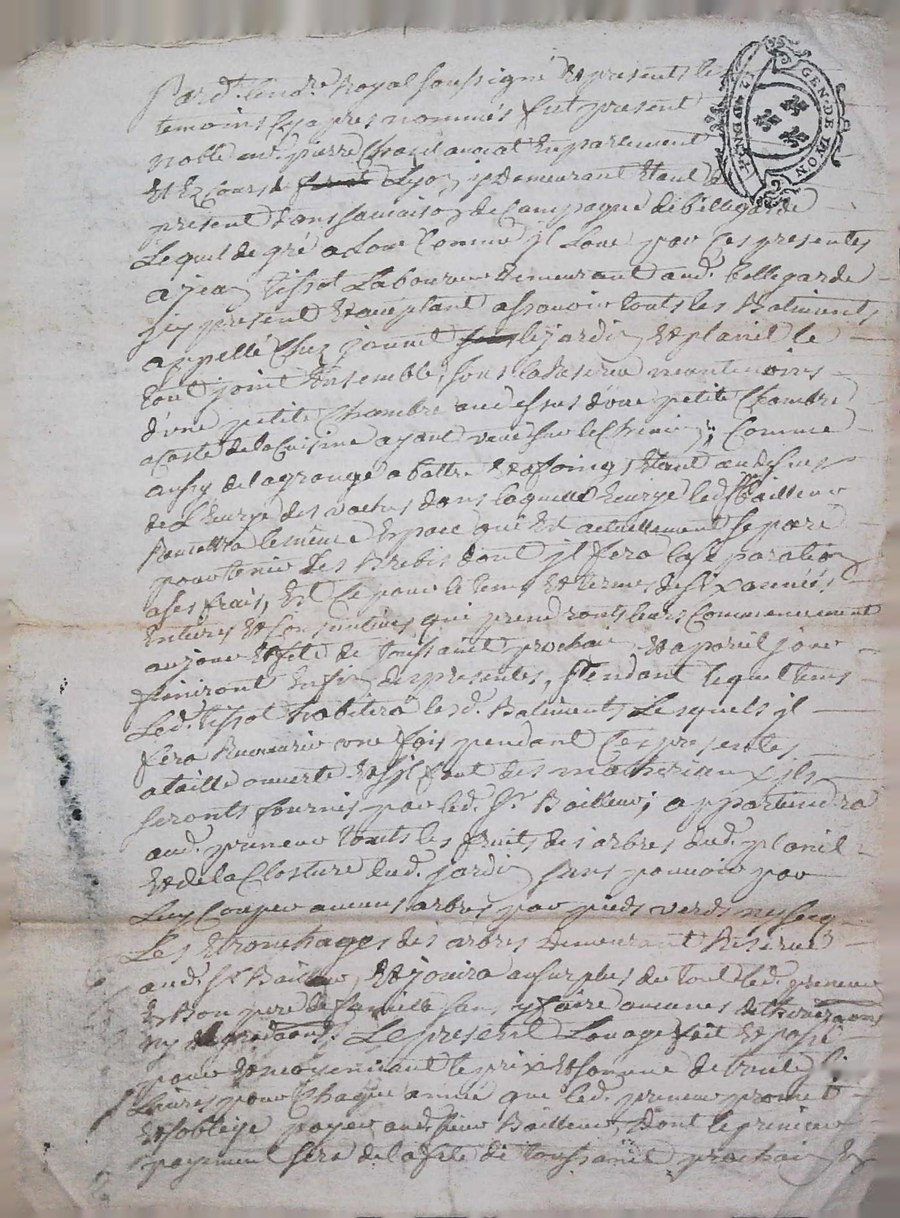 GEN. DE LYON
Pard. le no.re Royal soussigné et presents les
temoins cy apres nommés fut present
noble me. pierre avocat En parlement
et Ez Cours de Lyon y Demeurant Etant de
present dans sa maison de Campagne de bellegarde
Lequel de gré a Loué Comme jl Loue par Ces presentes
a jean tissot Laboureur Demeurant aud. bellegarde
jcy present et acceptant assavoir touts les Batiments
appellé Chez jannet le jardin et planil le
tout joint Ensemble, sous la Reserve neantmoins
d'une petite Chambre au dessus d'une petite Chambre
a Costé de la Cuisine ayant vue sur le Chemin; Comme
aussy de la grange a battre et a foing Etant au dessus
de L'Ecurye des vaches dans laquelle Ecurye led. sr Bailleur
le mème Espace qui Est actuellement separé
pour tenir des Brebis dont jl fera la separation
a ses frais, Et Ce pour le tems et terme de six années
Entieres et Consecutives qui prendronts leurs Commencement
au jour et fete de toussaint prochain et a pareil jour
finiront Enfin des presentes, Pendant lequel tems
Led. tissot habitera lesd. Batiments Lesquels jl
fera une fois pendant Ces presentes
a taille ouverte et s'jl faut des matheriaux jls
seronts fournis par led. Sr. Bailleur; appartiendra
aud. preneur touts les fruits des arbres dud. planil
et de la Closture dud. jardin sans pouvoir par
Luy Couper aucuns arbres par pieds verds ny secq
Les Etronchages des arbres Demeurant Reservé
aud. Sr. Bailleur, et jouira au surplus du tout led. preneur
En Bon pere de famille sans y faire aucunes deteriorations
ny degradaons. Le present Louage fait et passé
pour et moyennant le prix et somme de trente
Livres pour Chaque année que led. preneur promet
et s'oblige payer aud. sieur Bailleur, dont le premier
payement sera de la fete de toussaint prochain En